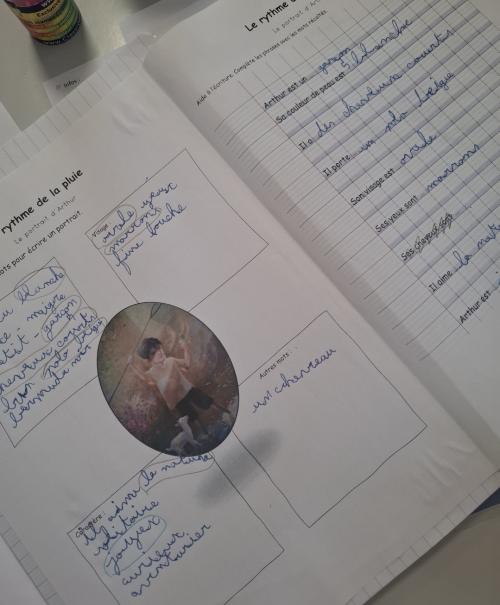 rythme de la pluie
Le portrait d'Arthur
ots pour écrire un portrait.
blanche
maigre
garçon
cheveux courts
bermuda noir
Visage :
ovale yeux
marrons
fine bouche
Autres mots :
un chevreau
la nature
solitaire
joueur
curieux
aventurier
Le rythme
Le portrait d'Arthur
Aide à l'écriture. Complète les phrases avec les mots récoltés.
Arthur est un garçon
Sa couleur de peau est blanche
Il a des cheveux courts
Il porte un polo beige
Son visage est ovale
Ses yeux sont marrons
Ses
Il aime la
Arthur est